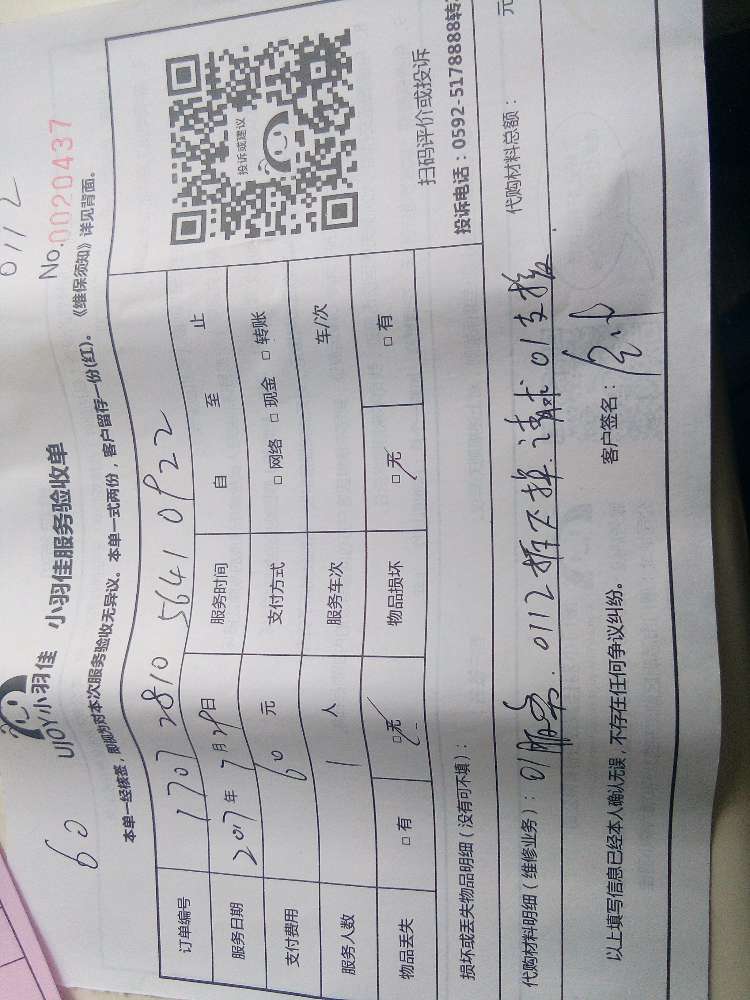 0112
60
UJOY小羽佳 小羽佳服务验收单
No.0020437
本单一经核签，即视为对本次服务验收无异议。本单一式两份，客户留存一份(红)。《维保须知》详见背面。
订单编号 1707 2810 5641 0922
服务日期 2017年 7月29日 服务时间 自 至 止
支付费用 60 元 支付方式 □网络 □现金 □转账
服务人数 1 人 服务车次 车/次
物品丢失 □有 □无 物品损坏 □无 □有
投诉或建议
扫码评价或投诉
投诉电话：0592-5178888转
损坏或丢失物品明细（没有可不填）：
代购材料明细（维修业务）： 代购材料总额： 元
01服务.0112拆下掉.请求01支援.
客户签名：
以上填写信息已经本人确认无误，不存在任何争议纠纷。